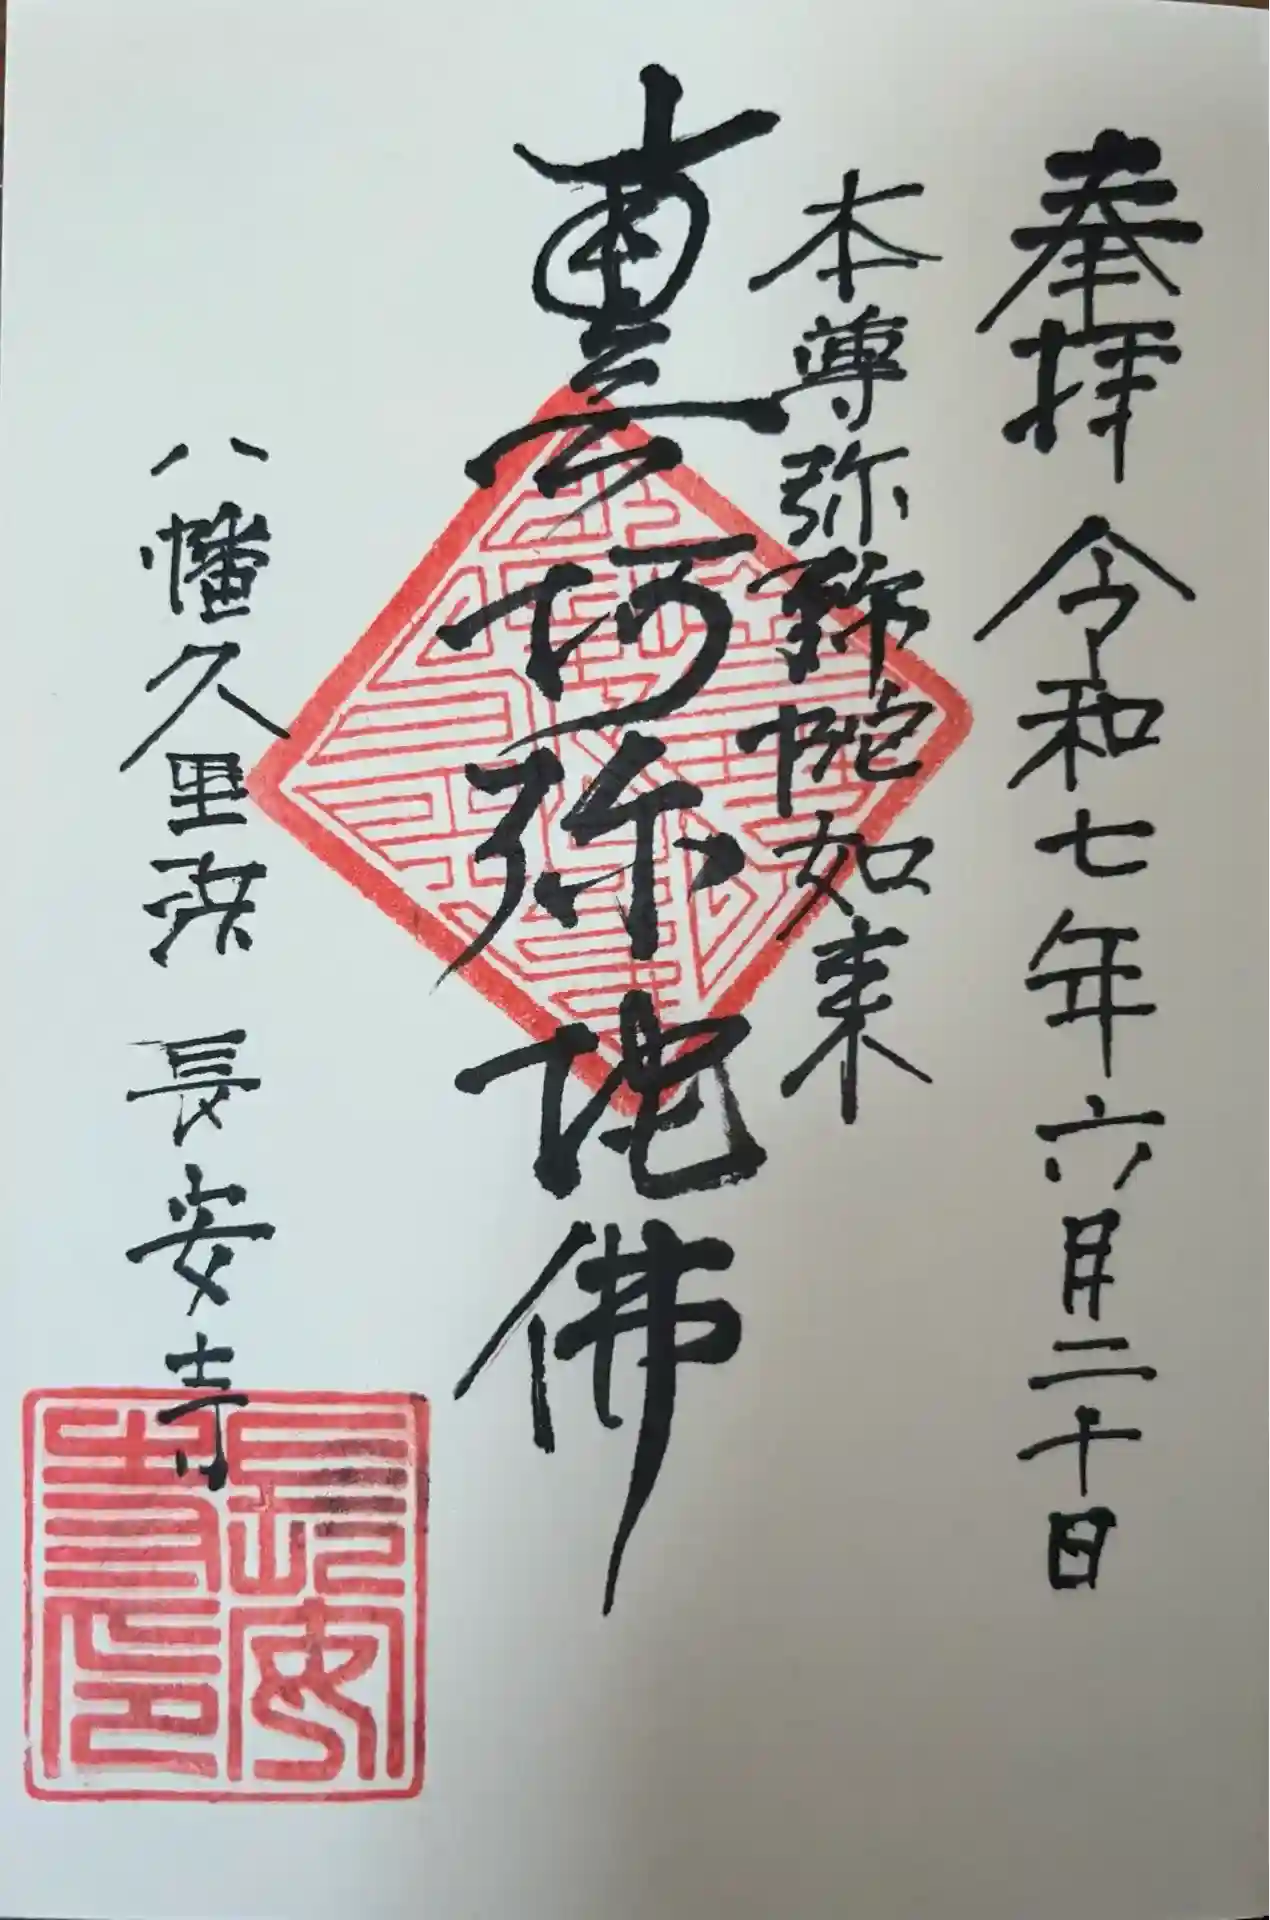 奉拝 令和七年六月二十日
本尊弥弥陀如来
南無阿弥陀佛
八幡久里浜 長安寺
長安寺印